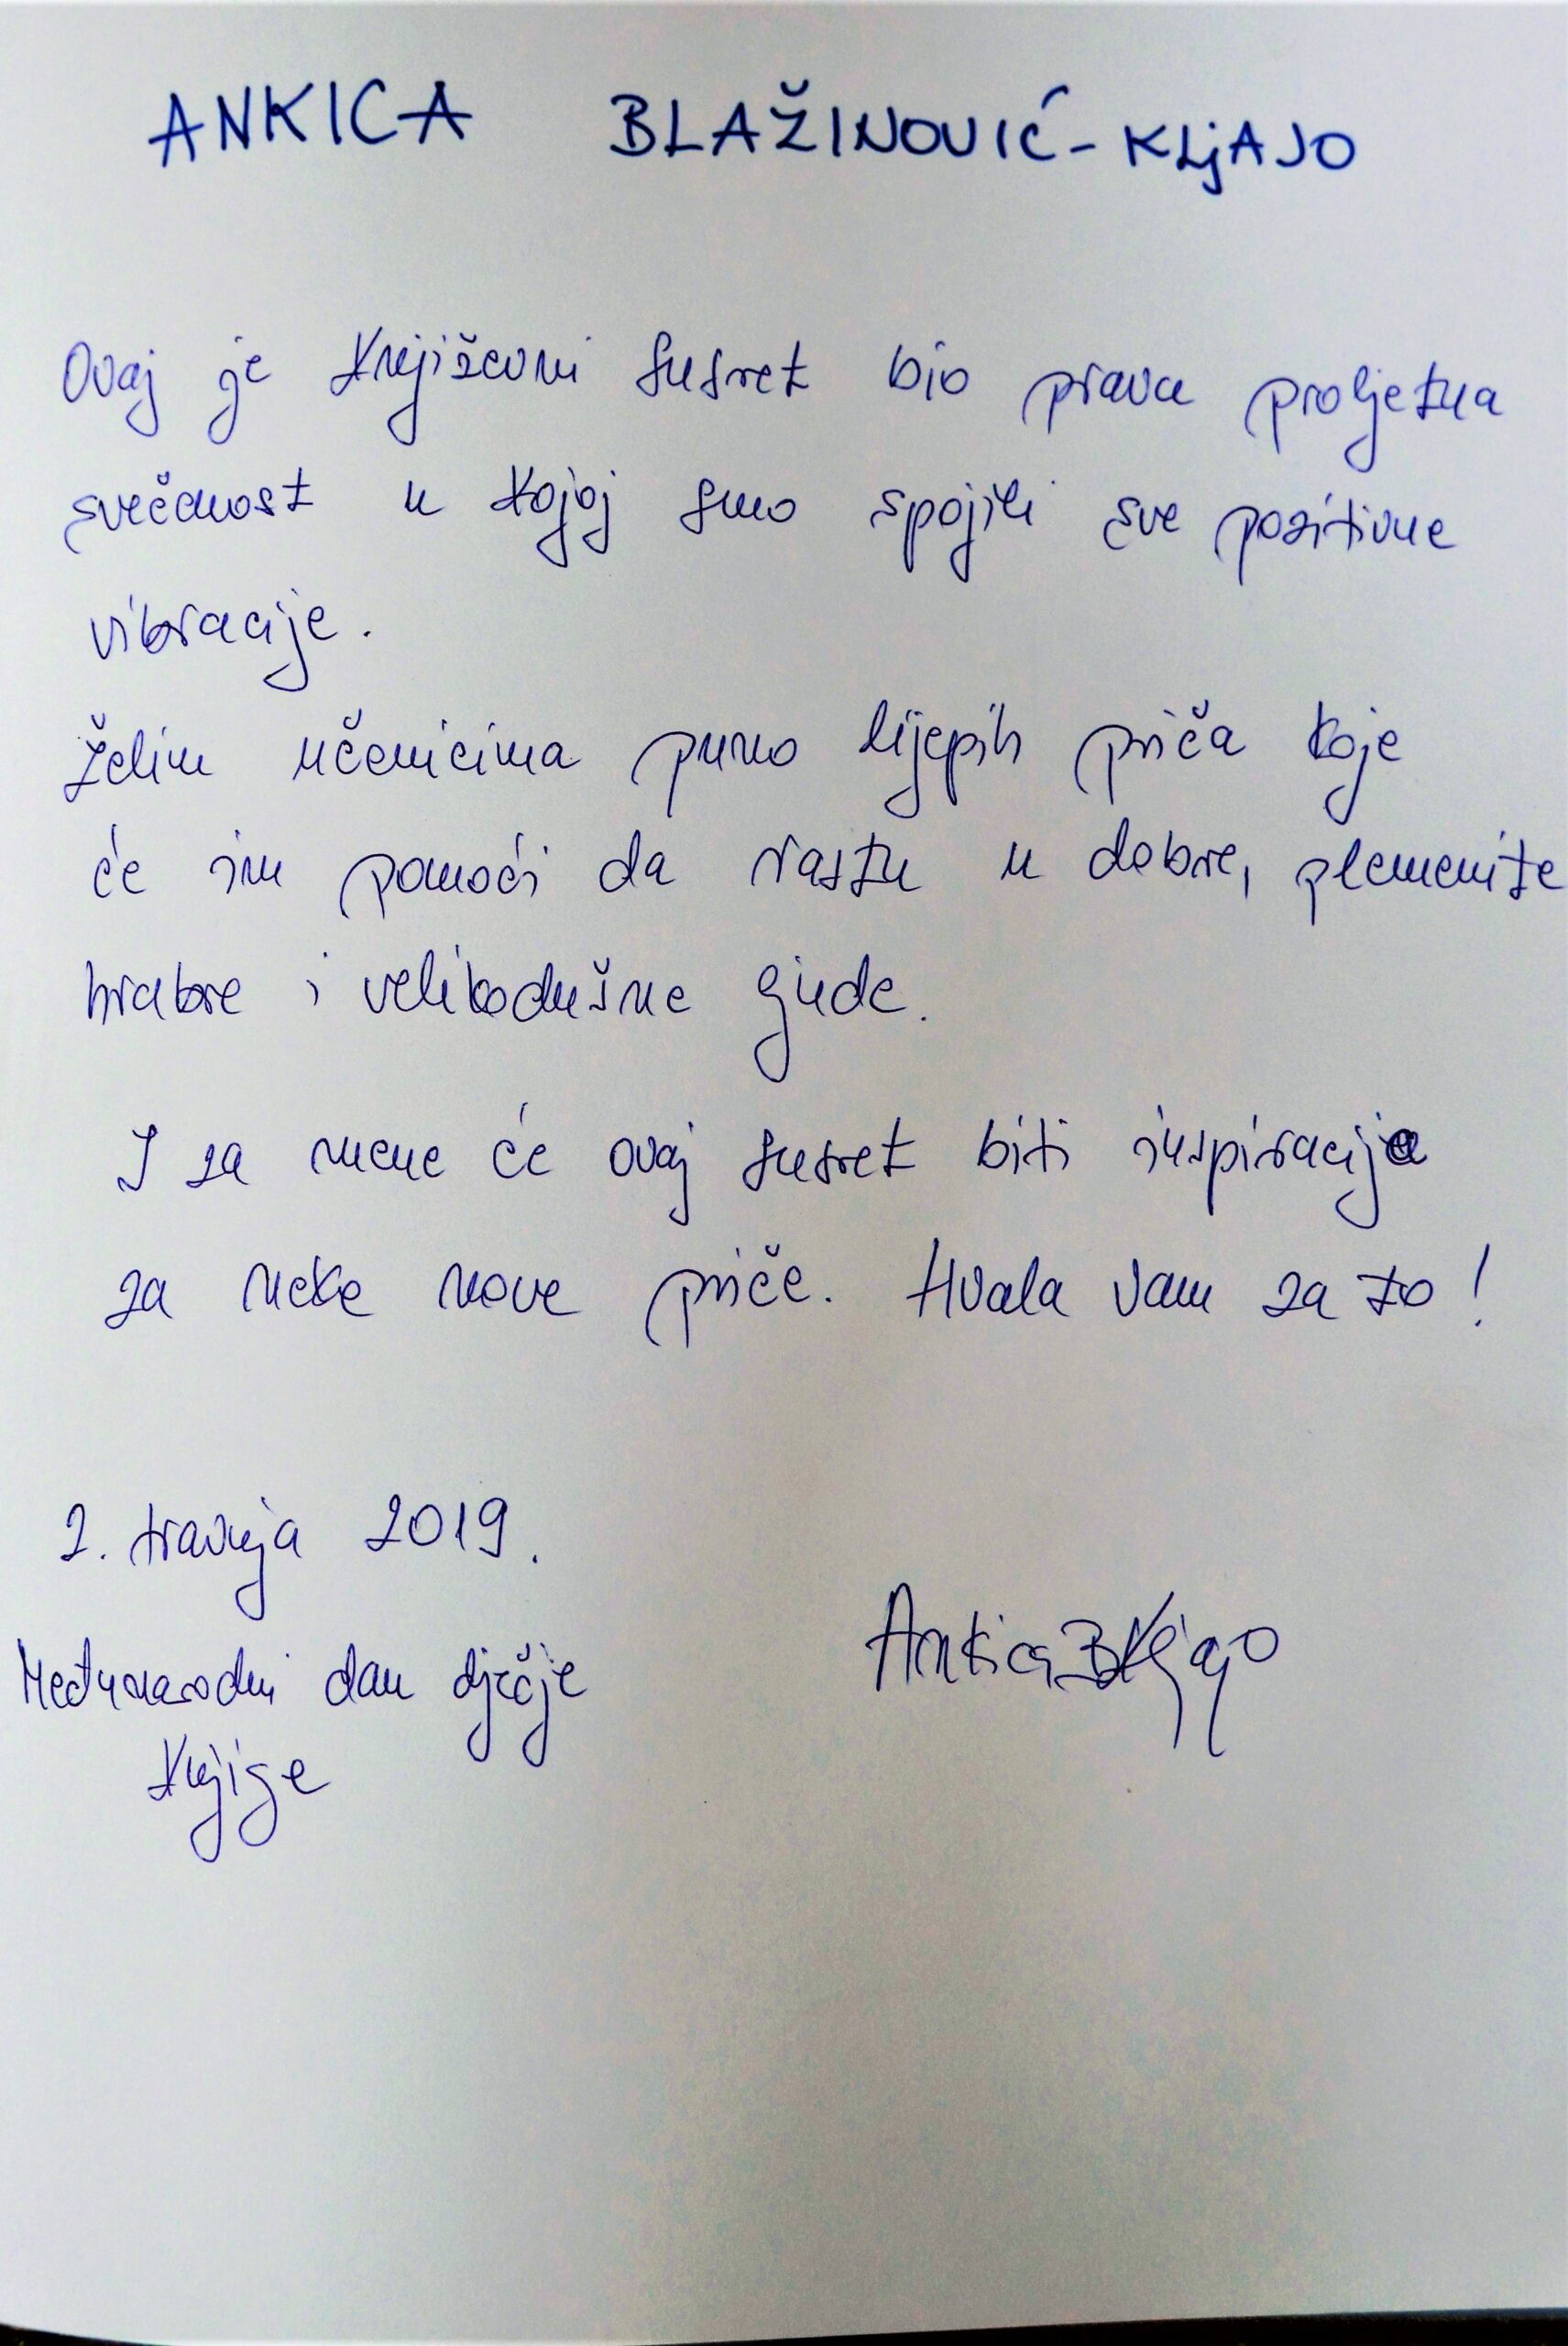 ANKICA BLAŽINOVIĆ - KLjAJO
Ovaj je književni susret bio prava proljetna
svečanost u kojoj smo spojili sve pozitivne
vibracije.
Želim učenicima puno lijepih priča koje
će im pomoći da rastu u dobre, plemenite
hrabre i velikodušne ljude.
I za mene će ovaj susret biti inspiracija
za neke nove priče. Hvala vam za to!
2. travnja 2019.
Međunarodni dan dječje
knjige
Ankica B Kljajo